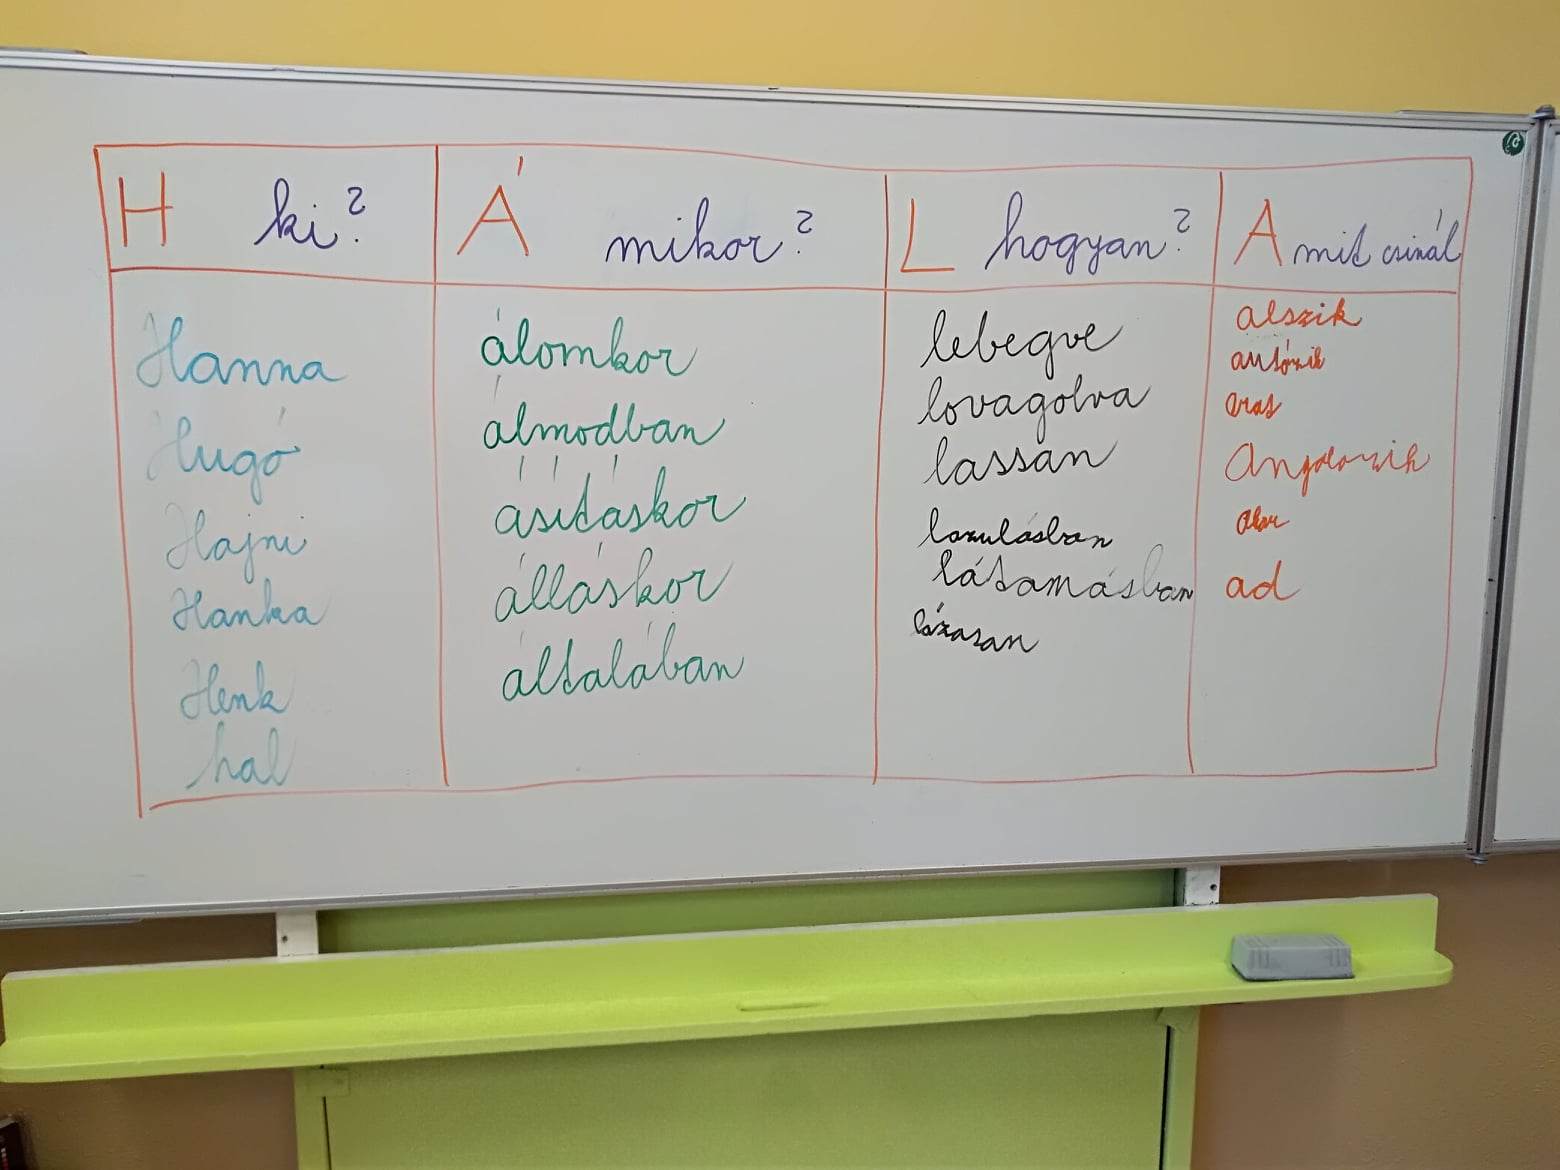 H ki? Á mikor? L hogyan? A mit csinál
Hanna álomkor lebegve alszik
Hugó álmodban lovagolva autózik
Hajni ásításkor lassan arat
Hanka álláskor lazulásban angolozik
Henk általában látomásban akar
hal lázasan ad